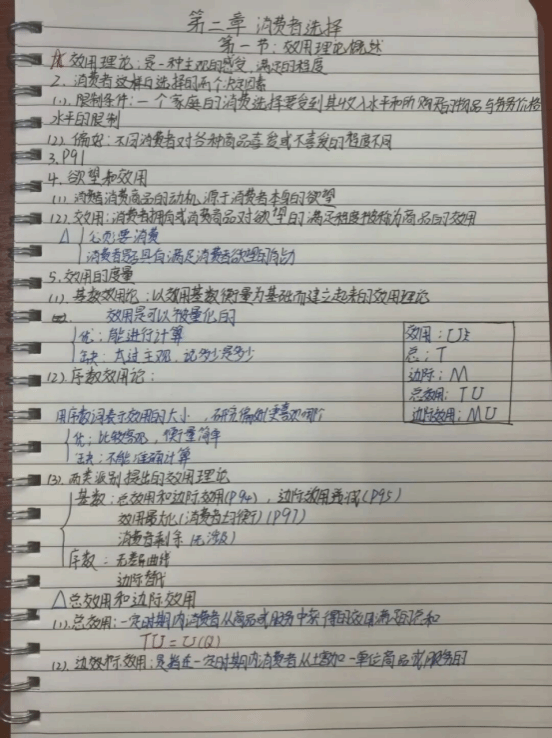 第二章 消费者选择
第一节：效用理论概述
1. 效用理论：是一种主观的感受，满足的程度
2. 消费者选择的两个决定因素
(1). 限制条件：一个家庭的消费选择要受到其收入水平和所购买的物品与劳务价格
水平的限制
(2). 偏好：不同消费者对各种商品喜爱或不喜爱的程度不同
3. P91
4. 欲望和效用
(1) 消费者消费商品的动机源于消费者本身的欲望
(2). 效用：消费者拥有或消费商品对欲望的满足程度被称为商品的效用
△ 必须要消费
消费者是否具有满足消费者欲望的能力
5. 效用的度量
(1). 基数效用论：以效用基数衡量为基础而建立起来的效用理论
效用是可以被量化的
优：能进行计算
缺：太过主观，说多少是多少
效用：U
总：T
边际：M
总效用：TU
边际效用：MU
(2). 序数效用论：
用序数词表示效用的大小，研究偏好更喜欢哪个
优：比较客观，衡量简单
缺：不能准确计算
(3). 两类派别提出的效用理论
基数：总效用和边际效用(P94)，边际效用递减(P95)
效用最大化(消费者均衡)(P97)
消费者剩余
序数：无差异曲线
边际替代
△总效用和边际效用
(1). 总效用：一定时期内消费者从商品或服务中获得的效用满足的总和
TU = U(Q)
(2). 边际效用：是指在一定时期内消费者从增加一单位商品或服务的